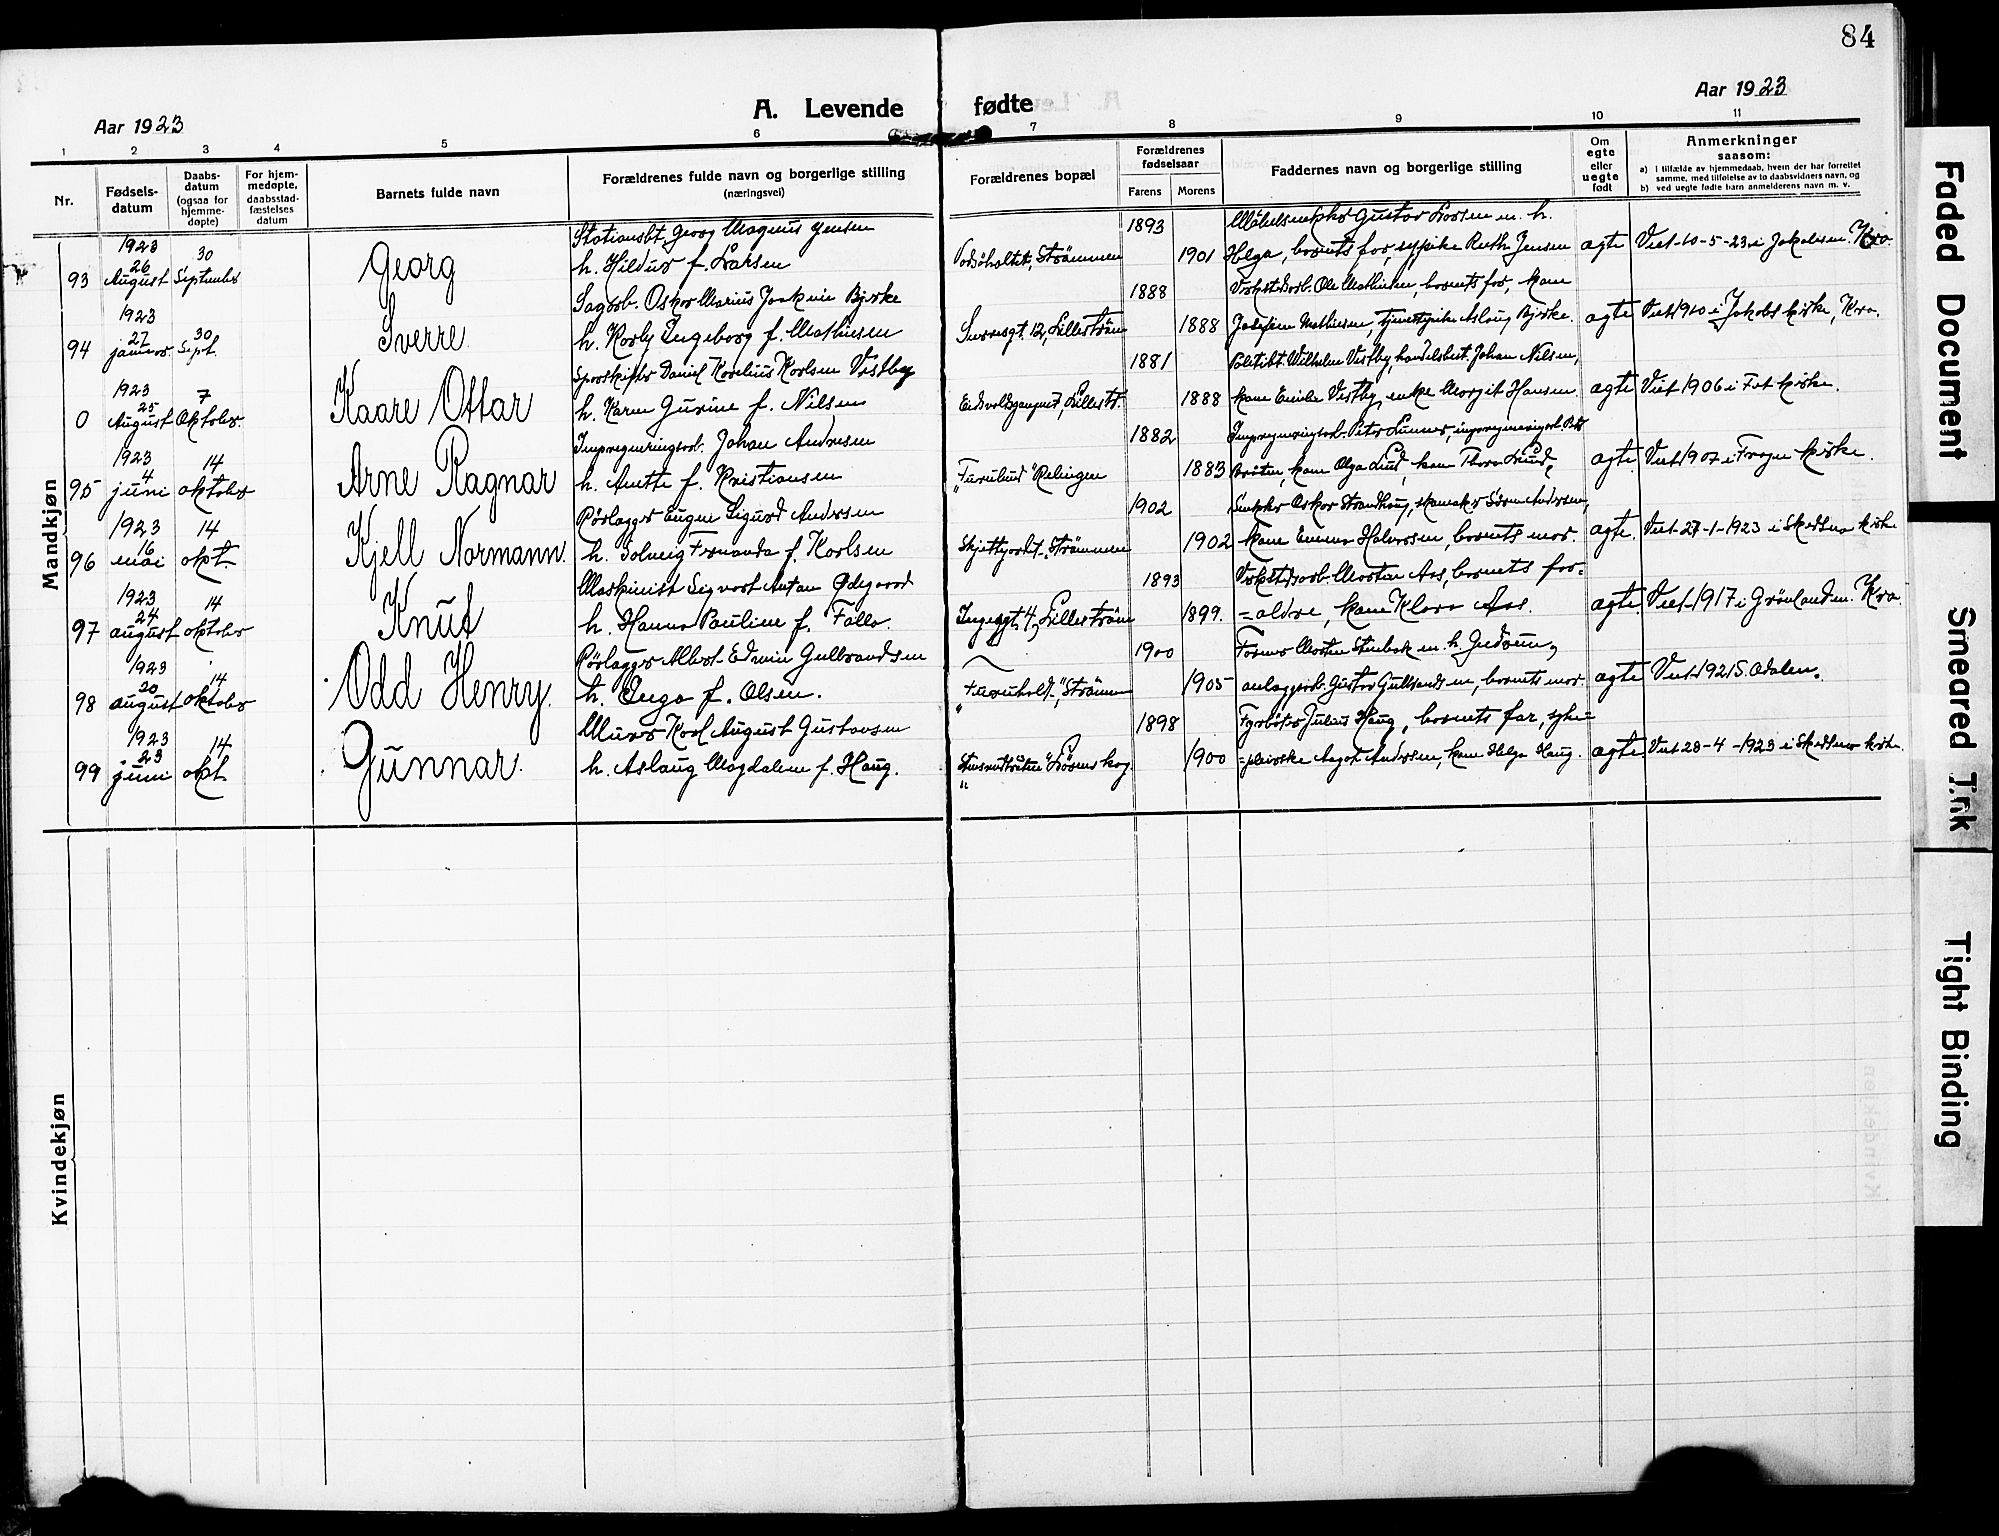 84
Aar 1923
A. Levende fødte
Aar 1923
1 2 3 4 5 6 7 8 9 10 11
Nr.
Fødsels-
datum
Daabs-
datum
(ogsaa for
hjemme-
døpte)
For hjem-
medøpte,
daabsstad-
fæstelses
datum
Barnets fulde navn
Forældrenes fulde navn og borgerlige stilling
(næringsvei)
Forældrenes bopæl
Forældrenes
fødselsaar
Farens Morens
Faddernes navn og borgerlige stilling
Om
egte
eller
uegte
født
Anmerkninger
saasom:
a) i tilfælde av hjemmedaab, hvem der har forrettet
samme, med tilføielse av to daabsvidners navn, og
b) ved uegte fødte barn anmelderens navn m. v.
Mandkjøn
1923 30 Stationsbt. Georg Magnus Jensen 1893 Gustav Larsen m. h.
93 26 August September Georg h. Hildur f. Larsen Strømmen 1901 Helga, barnets far, sypike Ruth Jensen egte Viet 10-5-23 i Jakobsen. Kra.
1923 Sagarb. Oskar Marius Joakim Bjerke 1888 Verkstedsarb. Ole Mathisen, barnets far, kone
94 27 januar 30 Sept. Sverre h. Karly Ingeborg f. Mathiesen 12, Lillestrøm 1888 Josefine Mathiesen, tjenestepike Aslaug Bjerke. egte Viet 1910 i Jakobs kirke, Kra.
1923 7 Sporskifter Daniel Kornelius Karlsen Vestby 1881 Politibt. Wilhelm Vestby, handelsbest. Johan Nilsen,
0 25 August Oktober. Kaare Ottar h. Karen Gurine f. Nilsen Lillestr. 1888 kone Emilie Vestby, enke Margit Hansen. egte Viet 1906 i Fet kirke.
1923 14 Impregneringsarb. Johan Andresen 1882 Impregneringsarb. Peter
95 4 juni oktober Arne Ragnar h. Anette f. Kristiansen "Furulund" Rælingen 1883 Braaten, kone Olga Lund, kone Thora Lund, egte Viet 1907 i Frogn kirke.
1923 14 Rørlægger Eugen Sigurd Andersen 1902 Snekker Oskar Strandhaug, skomaker Søren Andersen,
96 16 mai okt. Kjell Normann. h. Solveig Fernanda f. Karlsen Strømmen 1902 kone Emma Halvorsen, barnets mor. egte. Viet 27-1-1923 i Skedsmo kirke
1923 14 Maskinist Sigvart Anton Ødegaard 1893 Verkstedsarb. Morten Aas, barnets for=
97 24 august oktober Knut h. Hanna Pauline f. Falla. 4, Lillestrøm 1899. =ældre, kone Klara Aas. egte. Viet 1917 i Grønland m. Kra.
1923 14 Rørlægger Albert Edvin Gulbrandsen 1900 Former Morten Stenbak m. h. Gudrun,
98 20 august oktober Odd Henry. h. Inga f. Olsen. "Furuholt", Strømmen 1905 anlægsarb. Gustav Gulbrandsen, barnets mor egte Viet 1921 S. Odalen.
1923 14 Murer Karl August Gustavsen 1898 Fyrbøter Julius Haug, barnets far, syke=
99 23 juni okt. Gunnar. h. Aslaug Magdalene f. Haug. 1900 =pleierske Aagot Andersen, kone Helga Haug. egte. Viet 28-4-1923 i Skedsmo kirke.
Kvindekjøn
Faded Document
Smeared Ink
Tight Binding